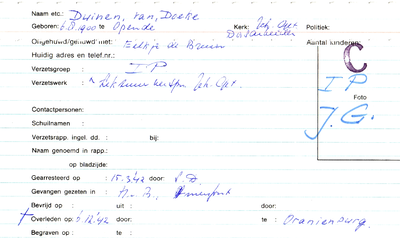 Naam etc.: Duinen, van, Doeke
Geboren: 6.8.1900 te Opende Kerk: Jeh. Get. Politiek:
Ongehuwd/gehuwd met: Eelkje de Bruin Aantal kinderen:
Huidig adres en telef.nr.: C
Verzetsgroep : I P I P
Verzetswerk : Jeh. Get. Foto
J.G.
Contactpersonen:
Schuilnamen :
Verzetsrapp. ingel. dd. : bij:
Naam genoemd in rapp.:
op bladzijde:
Gearresteerd op : 15.3.'42 door: S.D.
Gevangen gezeten in : Amersfoort
Bevrijd op : uit : door:
† Overleden op: 5.12.'42 door: te : Oranienburg.
Begraven op : te :